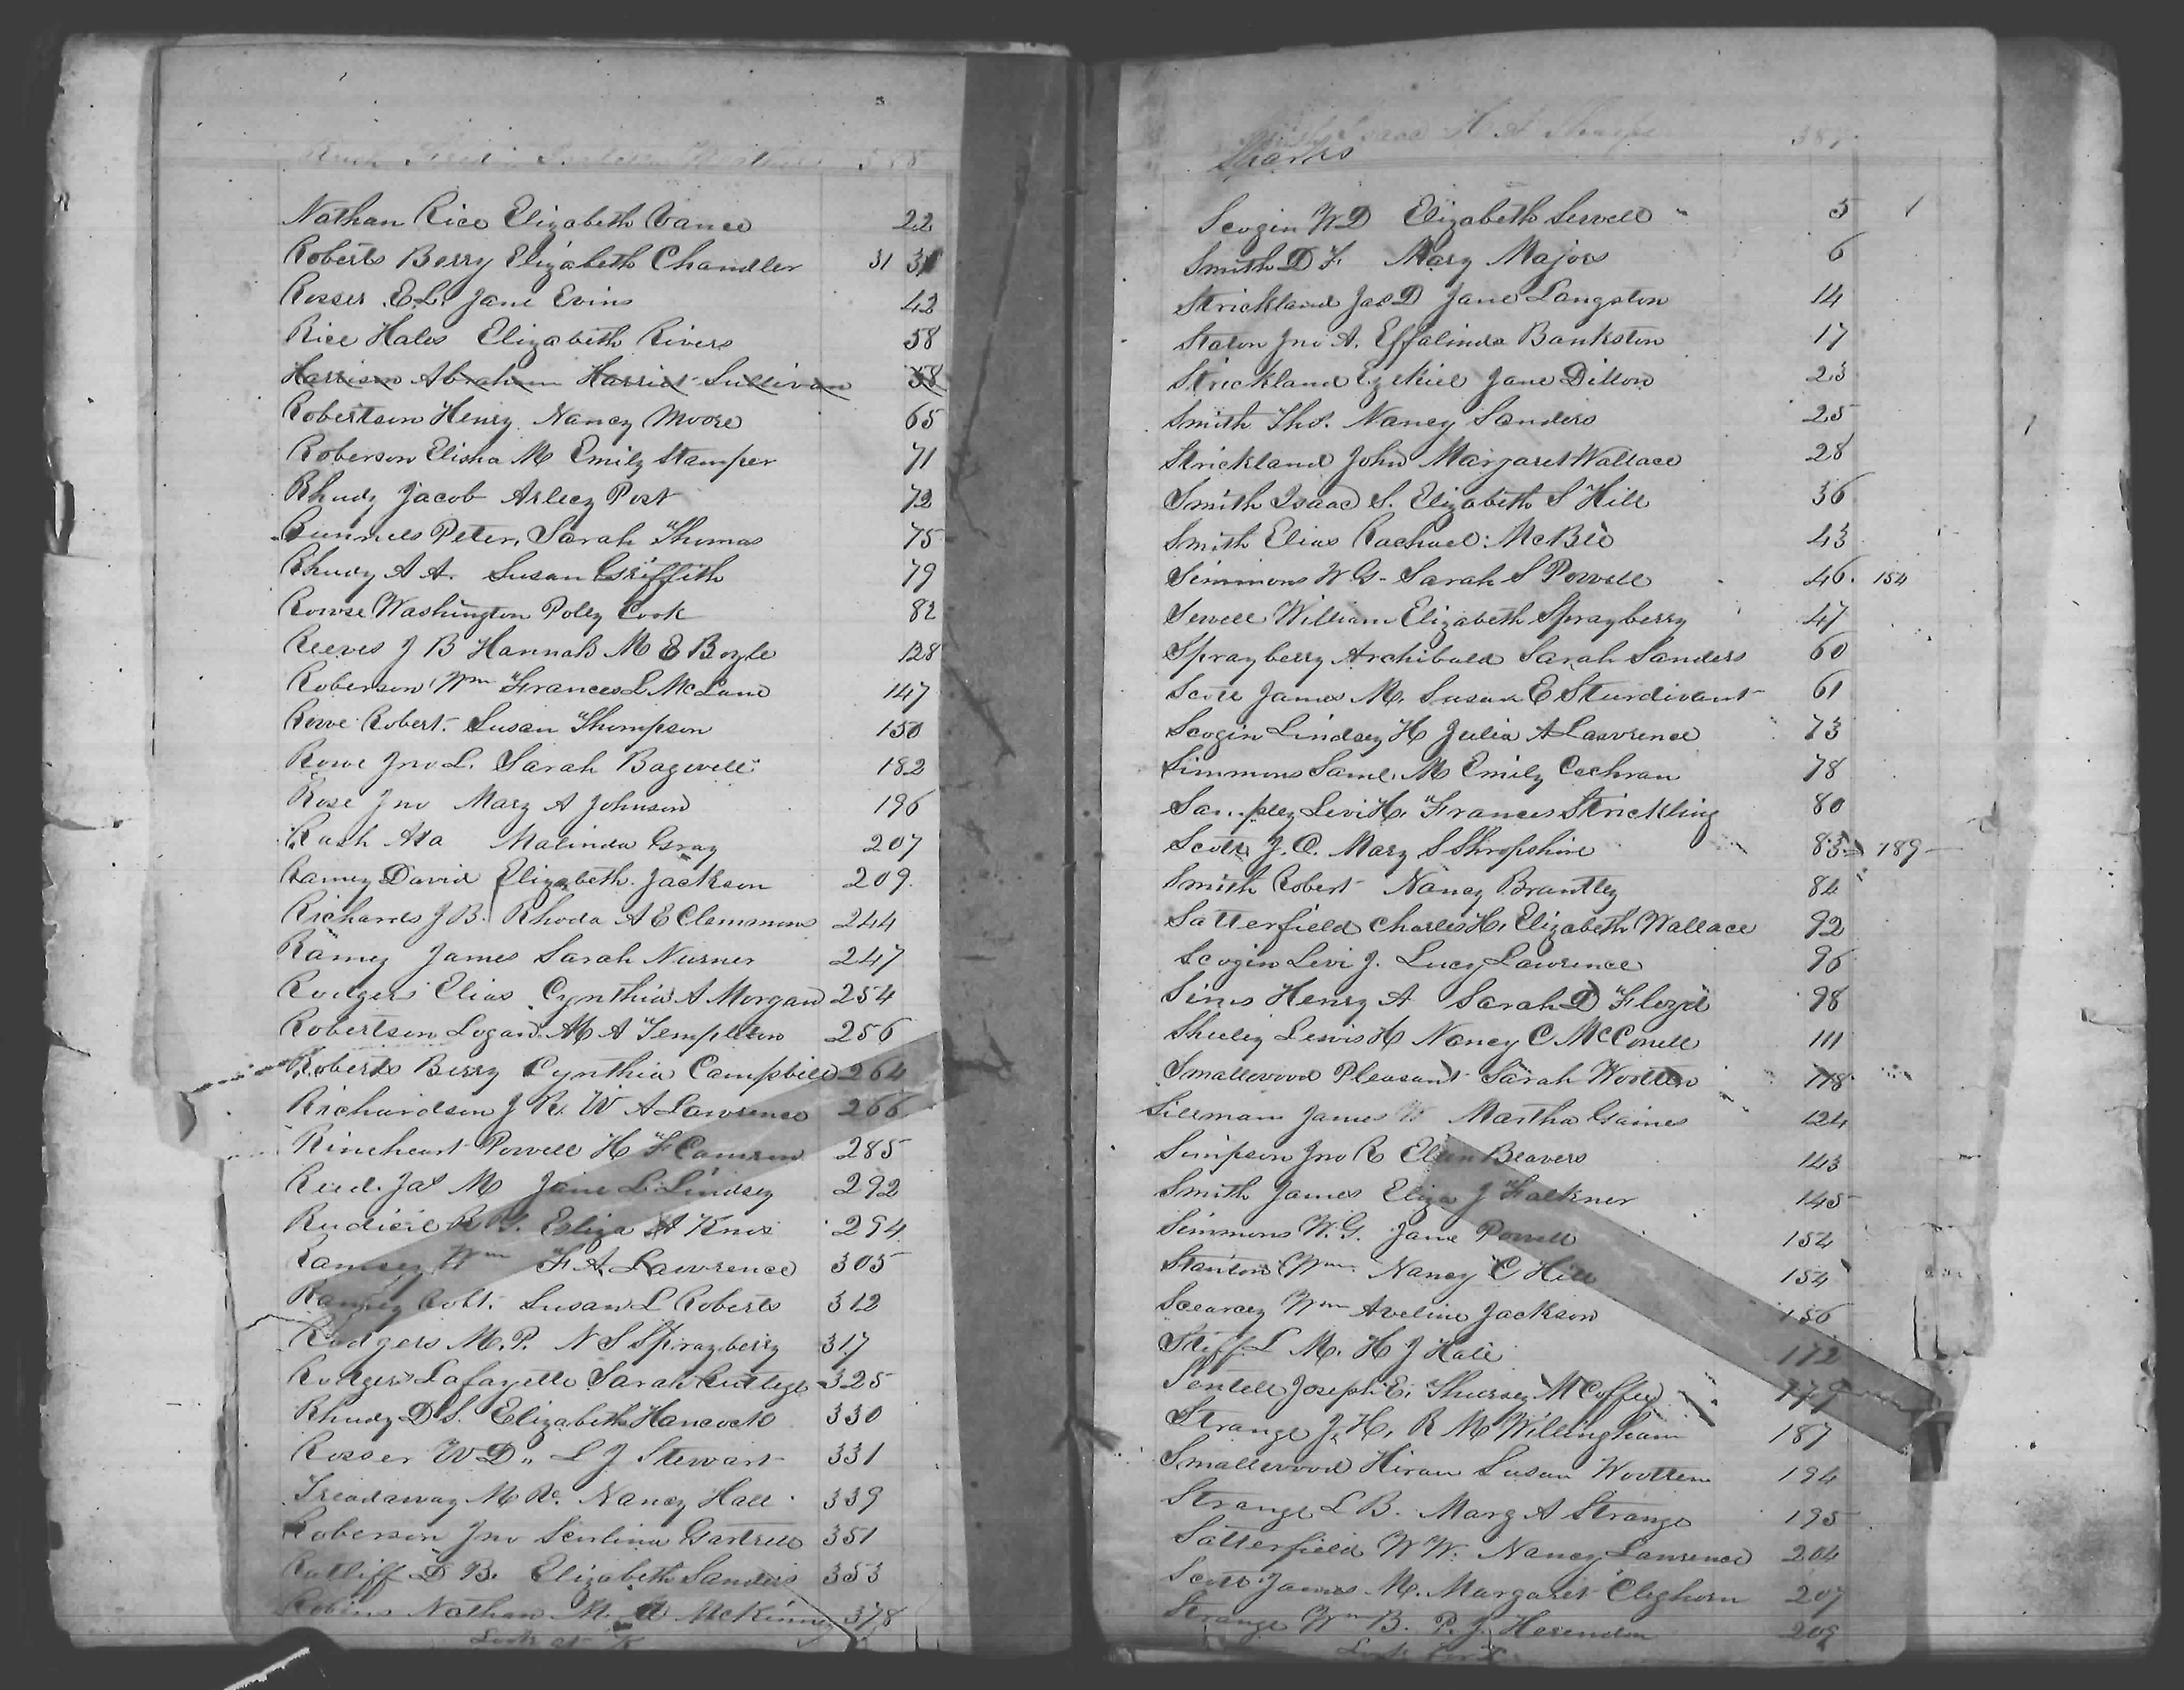 388
Nathan Rice Elizabeth Vance 22
Roberts Berry Elizabeth Chandler 31 31
Rosser E L. Jane Evins 42
Rice Hales Elizabeth Rivers 58
Harrison Abraham Harriet Sullivan 58
Robertson Henry Nancy Moore 65
Roberson Elisha M Emily Stamper 71
Rhudy Jacob Arlecy Post 72
Runnels Peter, Sarah Thomas 75
Rhudy A A. Susan Griffith 79
Rowse Washington Polly Cook 82
Reeves J B Hannah M E Boyle 128
Roberson Wm Frances L McLane 147
Rowe Robert. Susan Thompson 150
Rowe Jno L. Sarah Bagwell 182
Rose Jno Mary A Johnson 196
Rush Asa Malinda Gray 207
Ramey David Elizabeth Jackson 209
Richards J B. Rhoda A E Clemmons 244
Ramey James Sarah Nurner 247
Rodgers Elias Cynthia A Morgan 254
Robertson Logan M A Templeton 256
Roberts Berry Cynthia Campbell 264
Richardson J R. W A Lawrence 266
Rineheart Powell H F Cameron 285
Reed Jas M Jane L Lindsey 292
Rudicil R Eliza A Knox 294
Ramsey Wm F A Lawrence 305
Ramey Robt. Susan L Roberts 312
Rodgers M. P. N S Sprayberry 317
Rodgers Lafayette Sarah Rutlege 325
Rhudy D S. Elizabeth Hancock 330
Rosser W D,, L J Stewart 331
Treadaway M R. Nancy Hall 339
Roberson Jno Gartrell 351
Ratliff D B. Elizabeth Sanders 353
Robins Nathan M. McKinney 378
Look at
Isaac Sharps 387
Sparks
Scogin W D Elizabeth Sewell 5 1
Smith D F. Mary Majors 6
Strickland Jas D Jane Langston 14
Staton Jno A. Effalinda Bankston 17
Strickland Ezekiel Jane Dillon 23
Smith Tho. Nancy Sanders 25
Strickland John Margaret Wallace 28
Smith Isaac S. Elizabeth S Hill 36
Smith Elias Rachael McBee 43
Simmons W G. Sarah S Powell 46. 154
Sewell William Elizabeth Sprayberry 47
Sprayberry Archibald Sarah Sanders 60
Scott James M. Susan E Sturdivant 61
Scogin Lindsey H Julia A Lawrence 73
Simmons Saml. M Emily Cochran 78
Sampley Levi H. Frances Strickling 80
Scott J. C. Mary S Shropshire 83 189
Smith Robert Nancy Brantley 84
Satterfield Charles H. Elizabeth Wallace 92
Scogin Levi J. Lucy Lawrence 96
Sims Henry A Sarah D Floyd 98
Shuley Lewis H Nancy C McConell 111
Smallwood Pleasant Sarah Wootten 118
Sillman James Martha Gaines 124
Simpson Jno R Ellen Beavers 143
Smith James Eliza J Falkner 145
Simmons W. G. Jane Powell 154
Stanton Wm. Nancy C Hill 154
Scearcey Wm Aveline Jackson 156
Stiff L M. H J Hall 172
Sentell Joseph E. Thursey M Coffey 179
Strange J. H. R M Willingham 187
Smallwood Hiram Susan Wootten 194
Strange L B. Mary A Strange 195
Satterfield W W. Nancy Lawrence 204
Scott James M. Margaret Cleghorn 207
Strange Wm B. P. J. Herendon 209
Look for